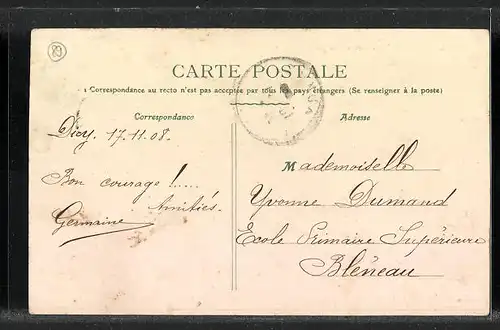 89
CARTE POSTALE
La Correspondance au recto n'est pas acceptée par tous les pays étrangers (Se renseigner à la poste)
Correspondance
Adresse
Dicy, 17.11.08.
Bon courage !.....
Amitiés.
Germaine
Mademoiselle
Yvonne Dumand
École Primaire Supérieure
Bléneau